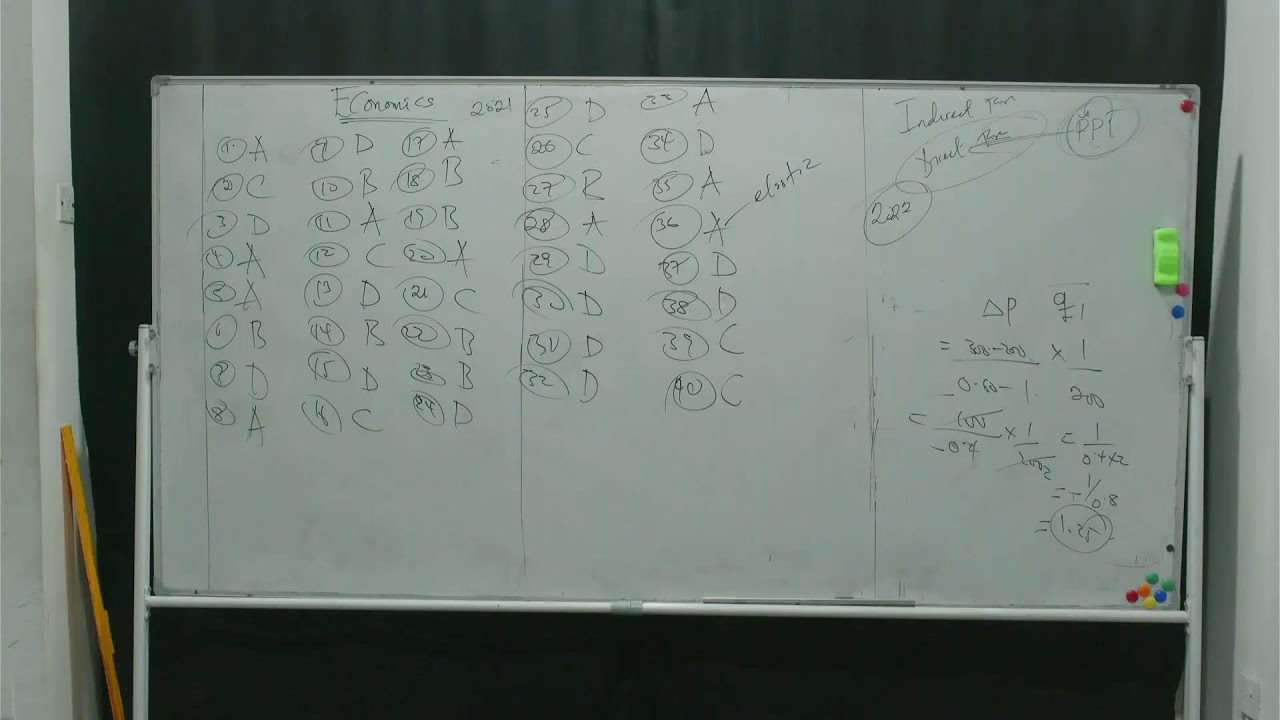 Economics 2021
1 A
2 C
3 D
4 A
5 A
6 B
7 D
8 A
9 D
10 B
11 A
12 C
13 D
14 B
15 D
16 C
17 A
18 B
19 B
20 A
21 C
22 B
23 B
24 D
25 D
26 C
27 B
28 A
29 D
30 D
31 D
32 D
33 A
34 D
35 A
36 A elastic
37 D
38 D
39 C
40 C
PPT
2022
ΔP q1
= 300-200 × 1
0.60-1 200
= 100 × 1 = 1
-0.4 200 2 0.4×2
= -1/0.8
= 1.25